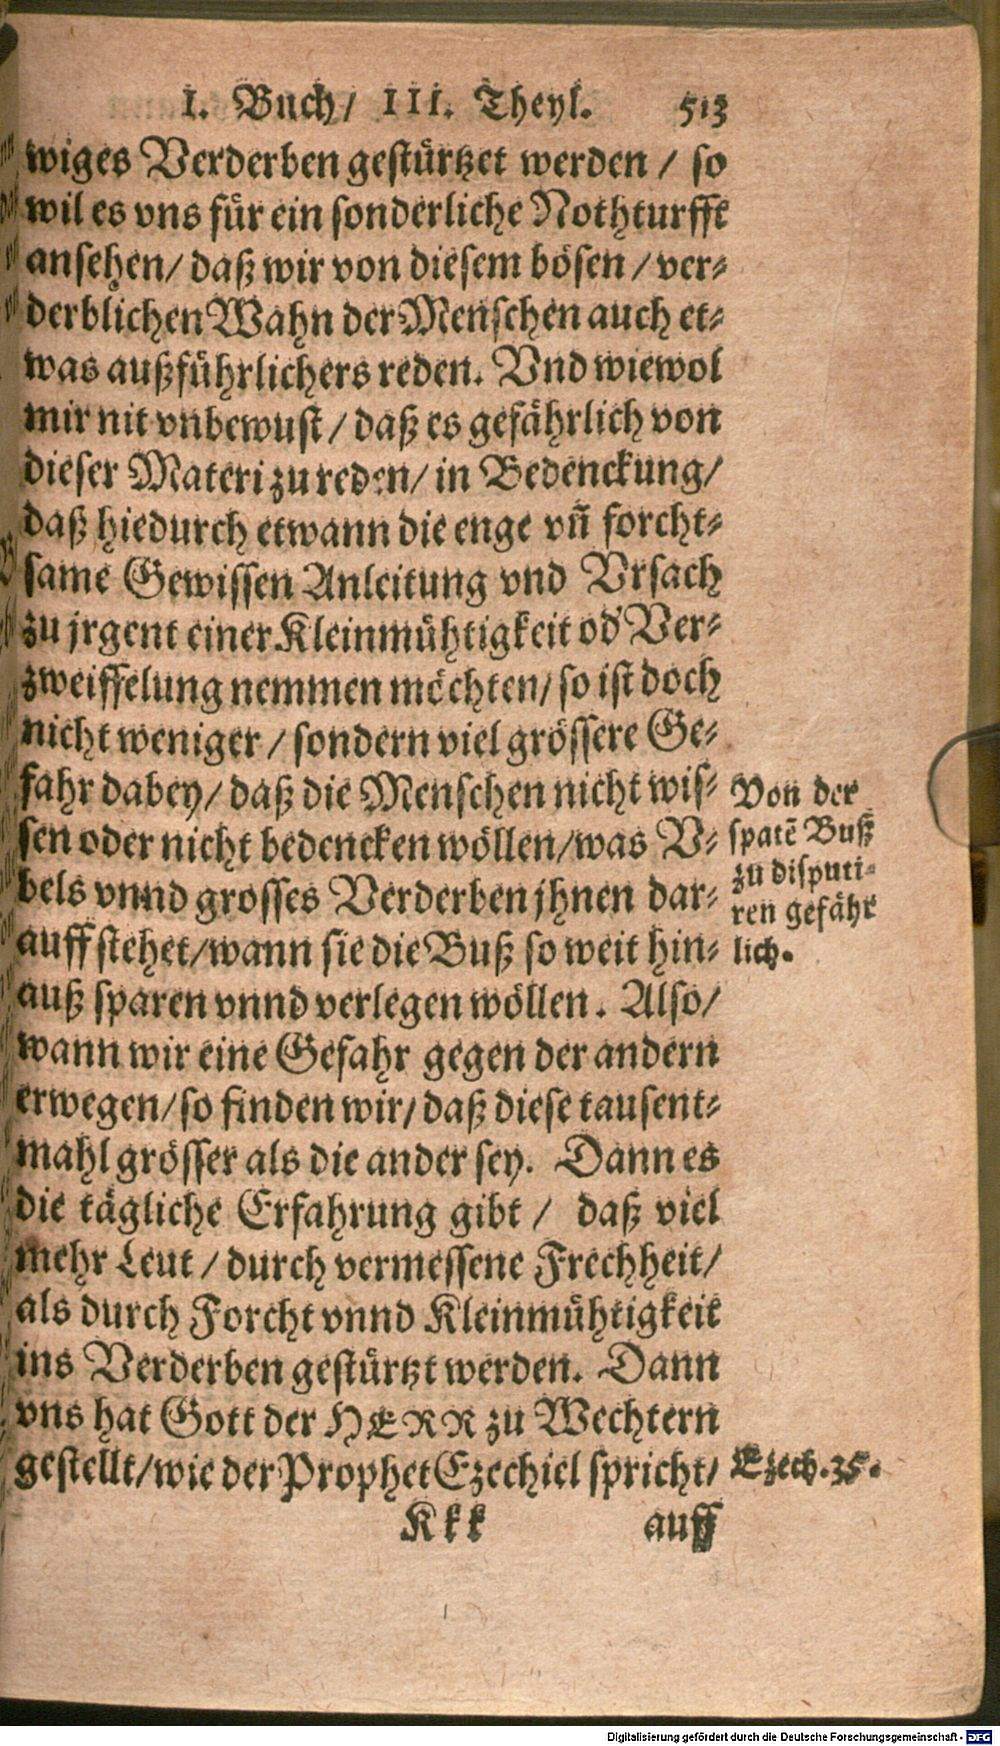 I. Buch/ III. Theyl. 513
wiges Verderben gestürtzet werden / so
wil es vns für ein sonderliche Nothturfft
ansehen/ daß wir von diesem bösen / ver⸗
derblichen Wahn der Menschen auch et⸗
was außführlichers reden. Vnd wiewol
mir nit vnbewust / daß es gefährlich von
dieser Materi zu reden/ in Bedenckung/
daß hiedurch etwann die enge vñ forcht⸗
same Gewissen Anleitung vnd Vrsach
zu jrgent einer Kleinmühtigkeit od' Ver⸗
zweiffelung nemmen möchten/ so ist doch
nicht weniger / sondern viel grössere Ge⸗
fahr dabey/ daß die Menschen nicht wis⸗
sen oder nicht bedencken wöllen/was V⸗
bels vnnd grosses Verderben jhnen dar⸗
auff stehet/wann sie die Buß so weit hin⸗
auß sparen vnnd verlegen wöllen. Also/
wann wir eine Gefahr gegen der andern
erwegen/so finden wir/ daß diese tausent⸗
mahl grösser als die ander sey. Dann es
die tägliche Erfahrung gibt / daß viel
mehr Leut / durch vermessene Frechheit/
als durch Forcht vnnd Kleinmühtigkeit
ins Verderben gestürtzt werden. Dann
vns hat Gott der HERR zu Wechtern
gestellt/wie der Prophet Ezechiel spricht/
Kkk auff
Von der
spatē Buß
zu disputi⸗
ren gefähr
lich.
Ezech. 35.
Digitalisierung gefördert durch die Deutsche Forschungsgemeinschaft - DFG